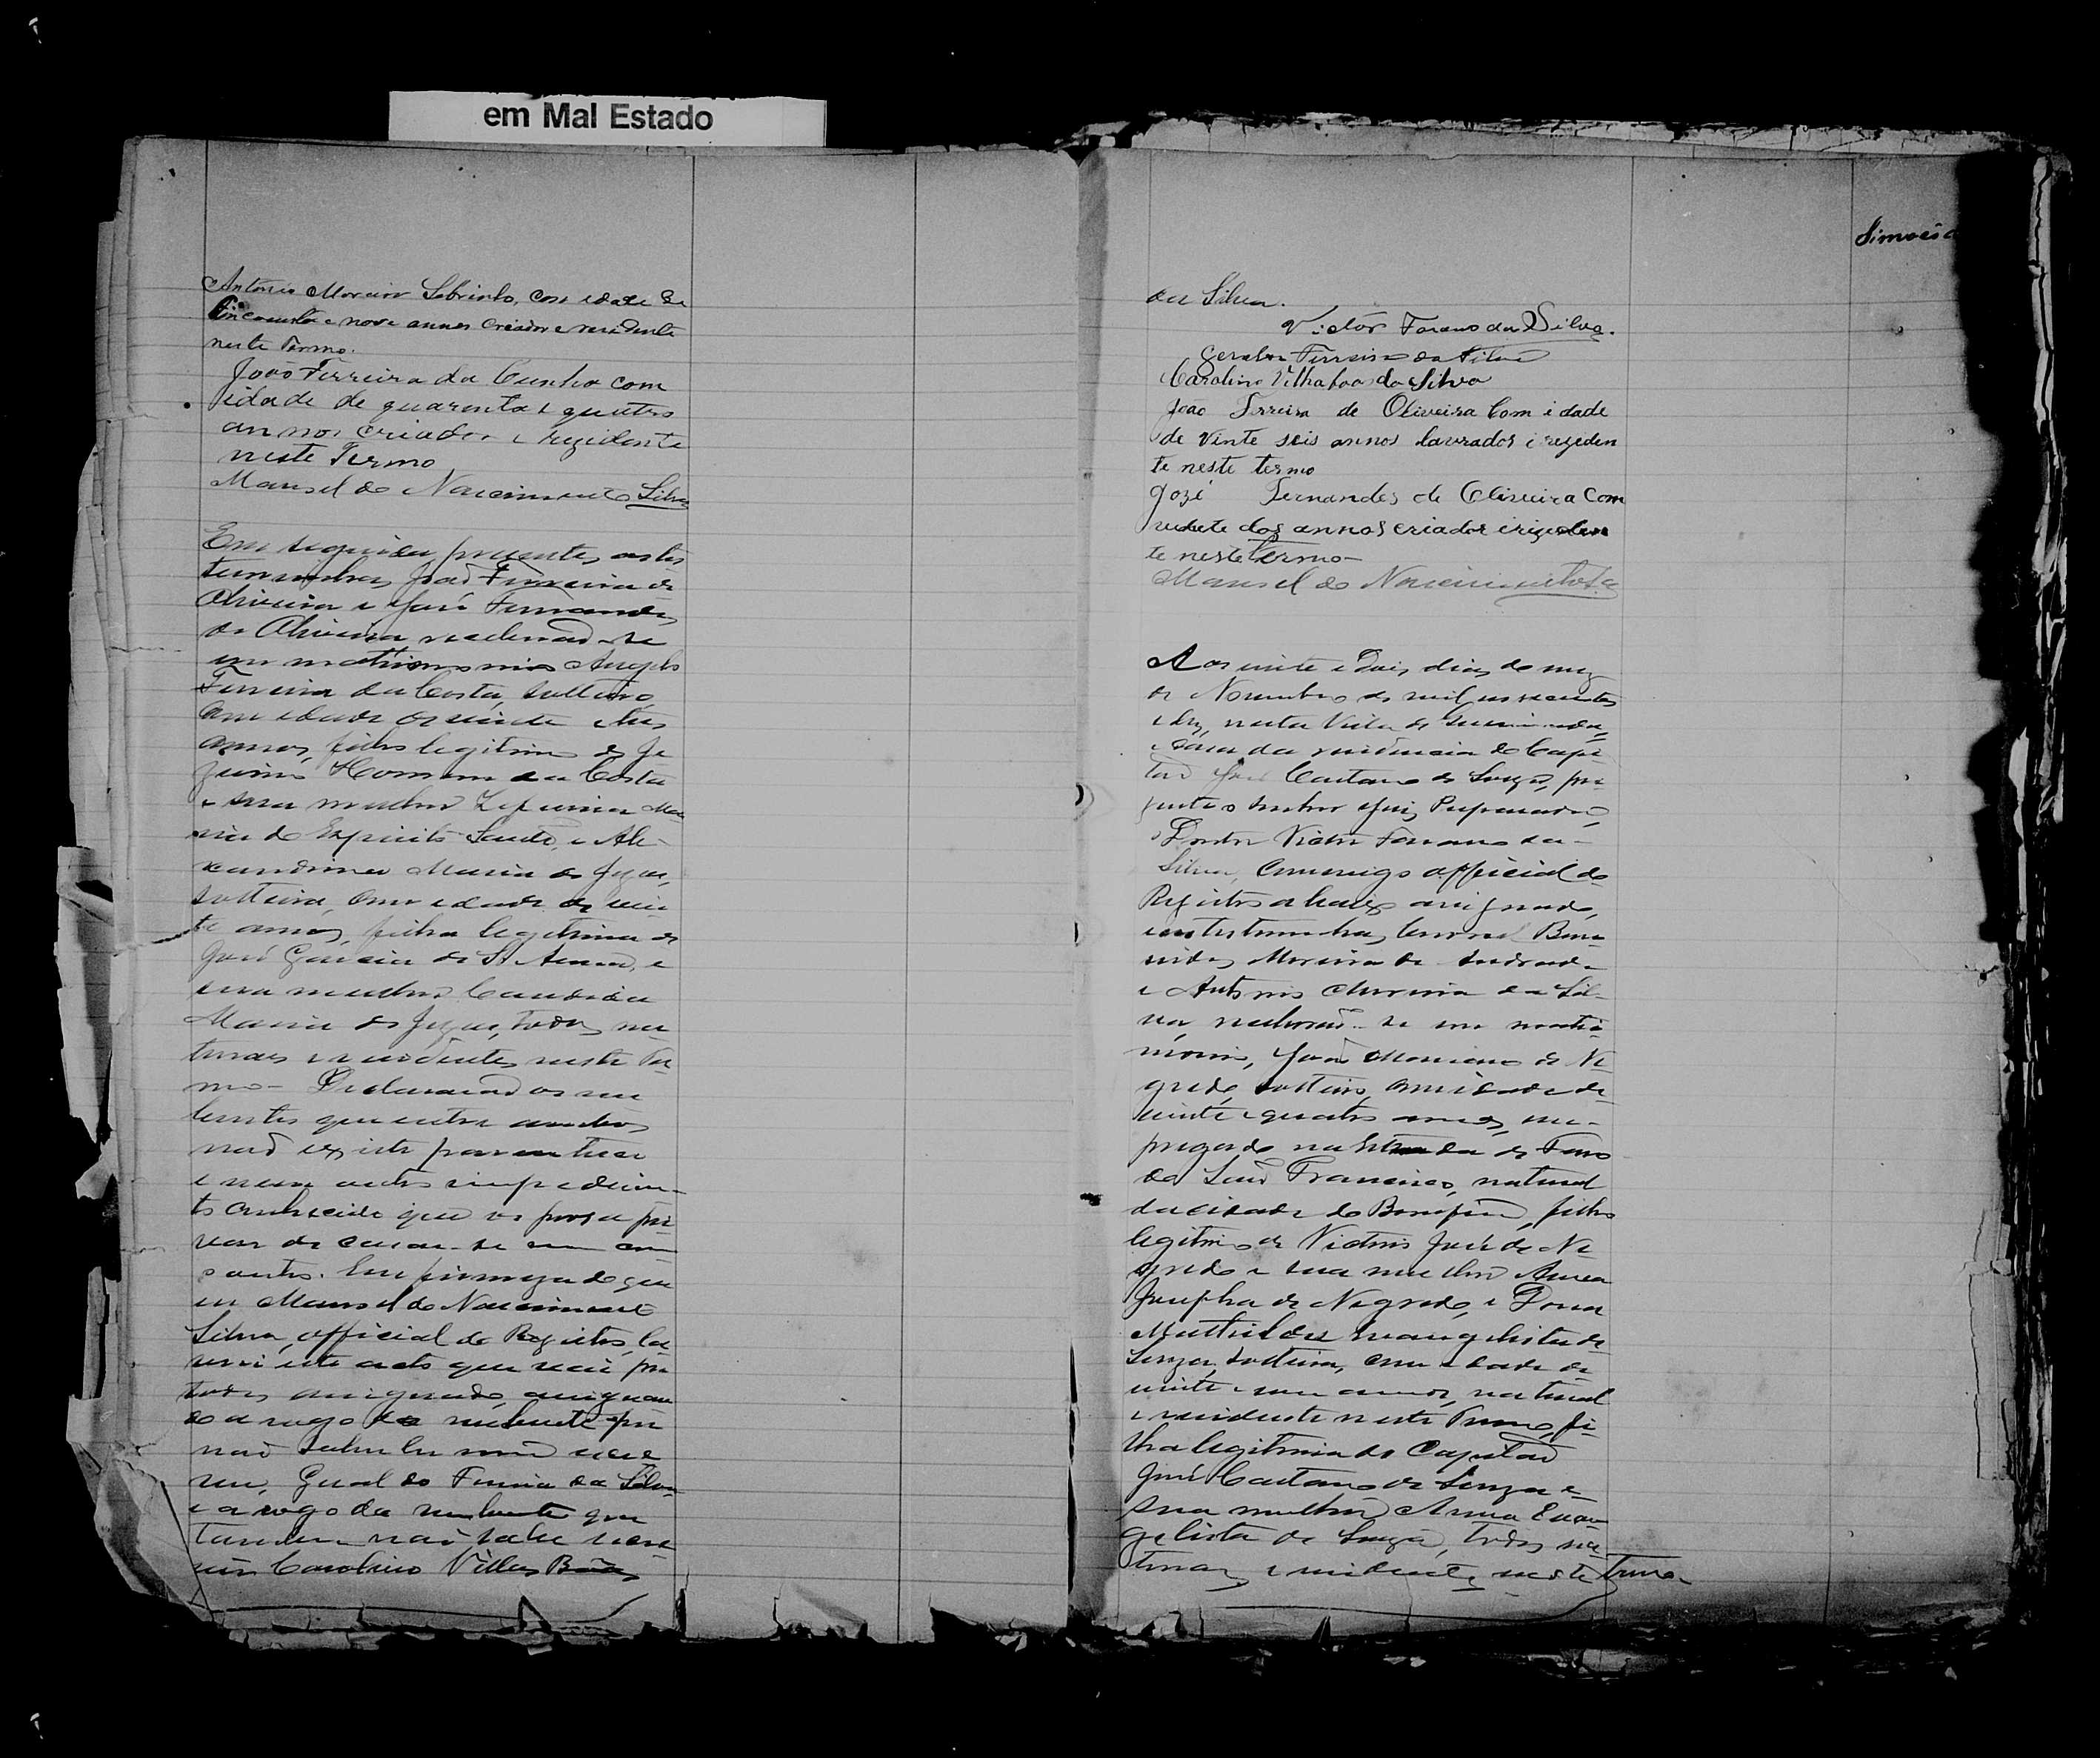 em Mal Estado
Antonio Moreira Sobrinho, com edade de
cincoenta e nove annos criador e residente
neste Termo.
João Ferreira da Cunha com
idade de quarenta e quatro
annos criador e rezidente
neste Termo
Manoel do Nascimento Silva
Em seguida presentes as tes
temunhas João Ferreira de
Oliveira e José Fernandes
de Oliveira receberão-se
em matrimonio Angelo
Ferreira da Costa, solteiro,
com edade de vinte e tres
annos, filho legitimo de
Homem da Costa
e sua mulher Zeferina Ma
ria do Espirito Santo, e Ale
xandrina Maria de Jezus,
solteira, com edade de vin
te annos, filha legitima de
José Garcia de Sant'Anna, e
sua mulher Candida
Maria de Jezus, todos na
turaes e residentes neste Ter
mo - Declararão os nu
bentes que entre ambos
não existe parentesco
e nem outro impedimen
to conhecido que os possa pri
var de casar-se um com
o outro. Em firmeza do que
eu Manoel do Nascimento
Silva, official do Registro, la
vrei este acto que vai por
todos assignado, assignan
do a rogo do nubente por
não saber ler nem escre
ver, Geraldo Ferreira da Silva
e a rogo da nubente que
tambem não sabe escre
ver Carolino Villas Bôas
da Silva.
Victor Farano da Silva.
Geraldo Ferreira da Silva
Carolino Vilhaboas da Silva
João Ferreira de Oliveira Com idade
de Vinte seis annos lavrador i regeden
te neste termo
Jozé Fernandes de Oliveira Com
annos criador i rigeden
te neste termo
Manoel do Nascimento Sa
Simoes
Aos vinte e dois dias do mez
de Novembro de mil novecentos
e dez, nesta Villa de
e casa da residencia do Capi
tão José Caetano de Souza, pre
zente o senhor Juiz Preparador,
Doutor Victor Farano da
Silva, commigo official do
Registro abaixo assignado,
e as testemunhas, Coronel
Moreira de Andrade
e Antonio Moreira da Sil
va, receberão-se em matri
monio, João Marciano de Ne
gredo, solteiro, com edade de
vinte e quatro annos, em
pregado na Estrada de Ferro
do São Francisco, natural
da cidade do Bomfim, filho
legitimo de Victorio José de Ne
gredo e sua mulher Anna
Josepha de Negredo, e Dona
Mathildes Evangelista de
Souza, solteira, com edade de
vinte e um annos, natural
e residente neste Termo, fi
lha legitima do Capitão
José Caetano de Souza e
sua mulher Anna Evan
gelista de Souza, todos na
turaes e residentes neste termo